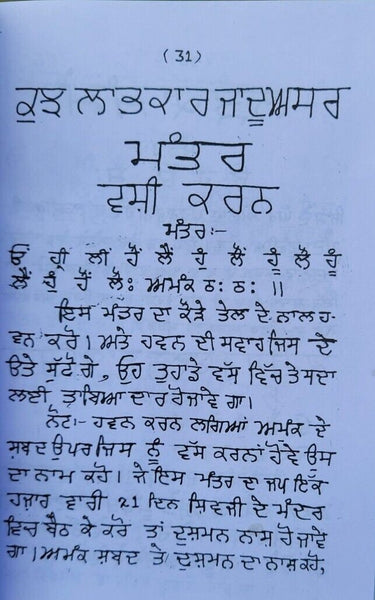 (31)
ਕੁਝ ਲਾਭਕਾਰ ਜਾਦੂਅਸਰ
ਮੰਤਰ
ਵਸ਼ੀ ਕਰਨ
ਮੰਤਰ:-
ਓਂ ਹ੍ਰੀ ਲੀਂ ਹੌਂ ਲੈਂ ਹੁੰ ਲੌਂ ਹੂੰ ਲੌ ਹੂੰ
ਲੈਂ ਹੂੰ ਹੌਂ ਲੋ: ਅਮੰਕ ਠ: ਠ: ॥
ਇਸ ਮੰਤਰ ਦਾ ਕੌੜੇ ਤੇਲ ਦੇ ਨਾਲ ਹ-
ਵਨ ਕਰੋ। ਅਤੇ ਹਵਨ ਦੀ ਸਵਾਰ ਜਿਸ ਦੇ
ਉਤੇ ਸੁੱਟੋ ਗੇ, ਓਹ ਤੁਹਾਡੇ ਵੱਸ ਵਿੱਚ ਤੇ ਸਦਾ
ਲਈ ਤਾਬਿਆ ਦਾਰ ਹੋ ਜਾਵੇ ਗਾ।
ਨੋਟ:- ਹਵਨ ਕਰਨ ਲਗਿਆਂ ਅਮੁਕ ਦੇ
ਸ਼ਬਦ ਉਪਰ ਜਿਸ ਨੂੰ ਵੱਸ ਕਰਨਾਂ ਹੋਵੇ ਉਸ
ਦਾ ਨਾਮ ਕਹੋ। ਜੇ ਇਸ ਮੰਤਰ ਦਾ ਜਪ ਇੱਕ
ਹਜ਼ਾਰ ਵਾਰੀ 21 ਦਿਨ ਸ਼ਿਵਜੀ ਦੇ ਮੰਦਰ
ਵਿਚ ਬੈਠ ਕੇ ਕਰੋ ਤਾਂ ਦੁਸ਼ਮਨ ਨਾਸ਼ ਹੋ ਜਾਵੇ
ਗਾ। ਅਮੰਕ ਸ਼ਬਦ ਤੇ ਦੁਸ਼ਮਨ ਦਾ ਨਾਸ਼ ਕਹੋ,